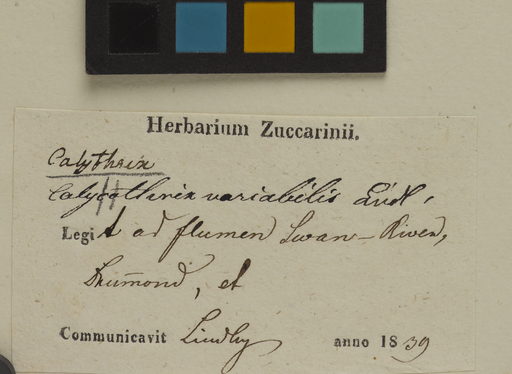 Herbarium Zuccarinii.
Calythrix
Calycothrix variabilis Lindl.
Legit ad flumen Swan-River,
Drumond, et
Communicavit Lindley anno 1839